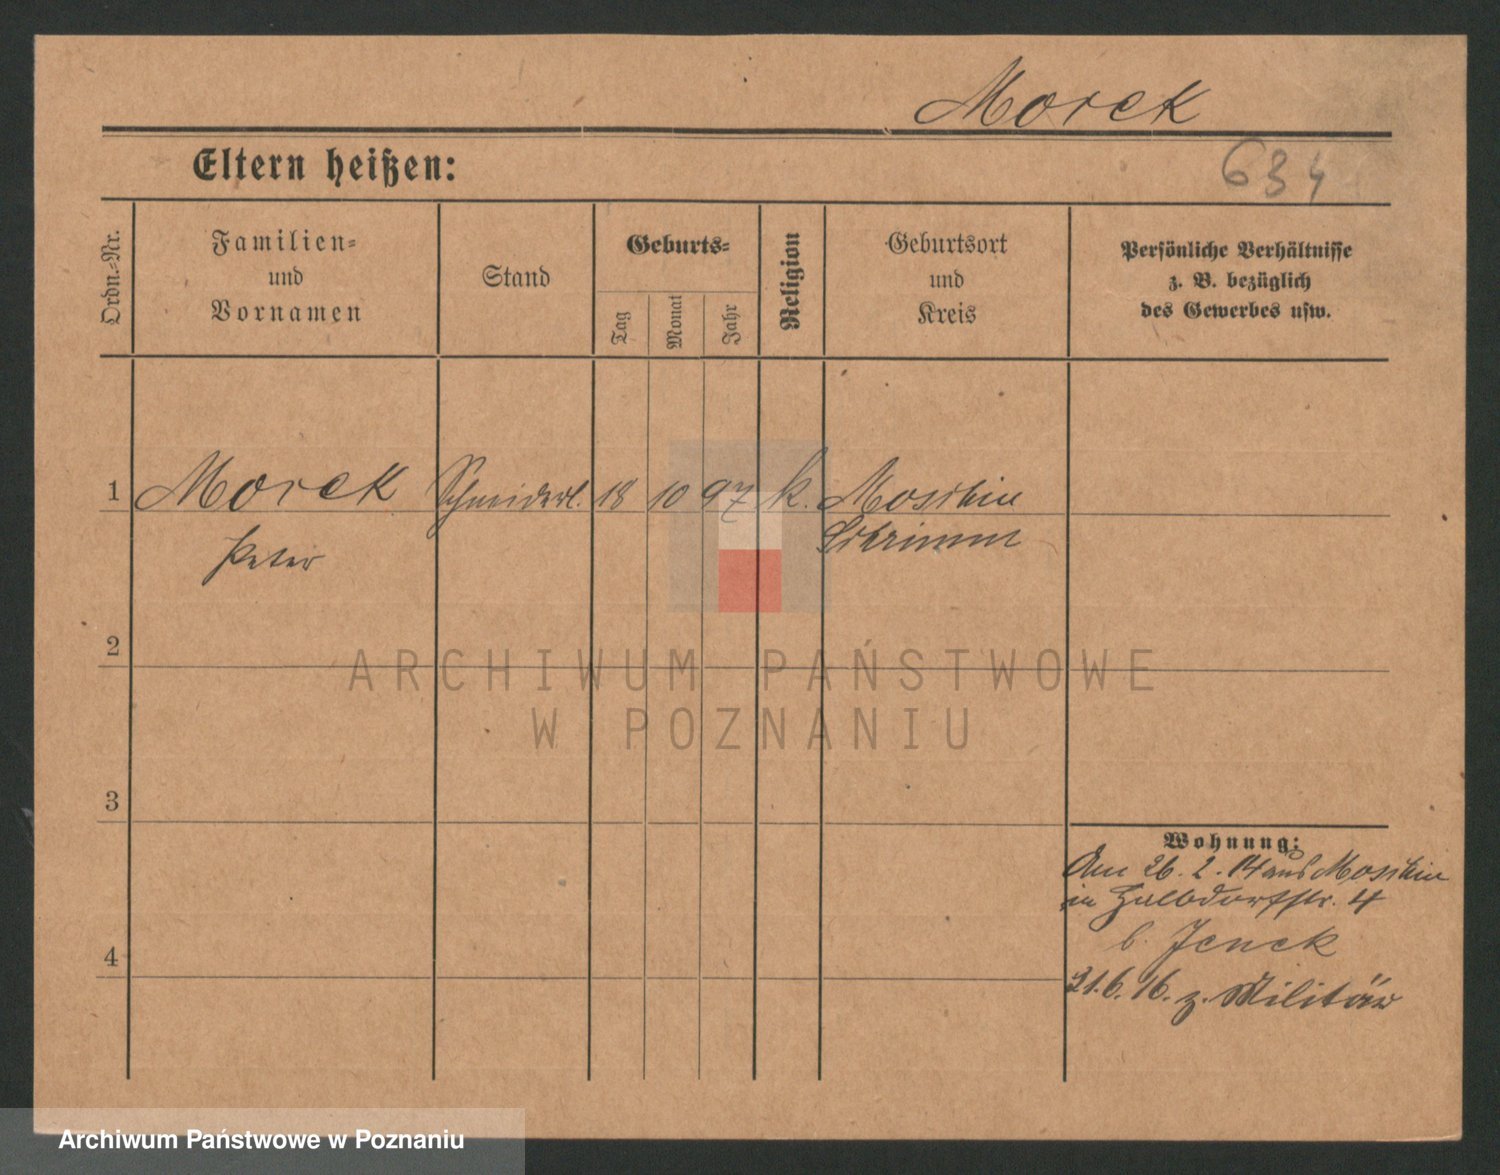 Morek
Eltern heißen:
634
Ordn.-Nr.
Familien-
und
Vornamen
Stand
Geburts-
Tag
Monat
Jahr
Religion
Geburtsort
und
Kreis
Persönliche Verhältnisse
z. B. bezüglich
des Gewerbes usw.
1 Morek Schneiderl. 18 10 97 k. Moschin
Peter Schrimm
2
3
4
Wohnung:
Am 26. 2. 14 aus Moschin
in Halbdorfstr. 4
b. Jenek
21.6.16. z. Militär
ARCHIWUM PAŃSTWOWE
W POZNANIU
Archiwum Państwowe w Poznaniu